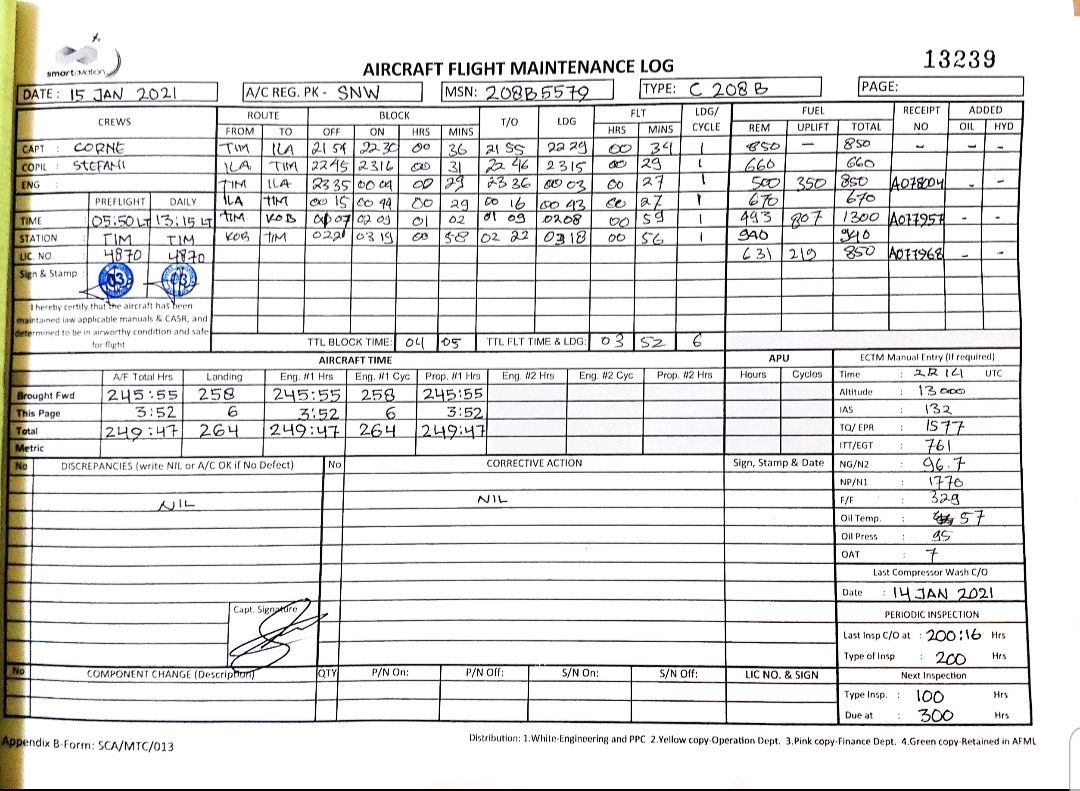 smartaviation
AIRCRAFT FLIGHT MAINTENANCE LOG
13239
DATE: 15 JAN 2021 A/C REG. PK - SNW MSN: 208B5579 TYPE: C 208 B PAGE:
CREWS ROUTE BLOCK T/O LDG FLT LDG/CYCLE FUEL RECEIPT NO ADDED
FROM TO OFF ON HRS MINS HRS MINS REM UPLIFT TOTAL OIL HYD
CAPT : CORNE TIM ILA 2154 2230 00 36 2155 2229 00 34 1 850 - 850 - - -
COPIL : STEFANI ILA TIM 2245 2316 00 31 2246 2315 00 29 1 660 660
ENG : TIM ILA 2335 0004 00 29 2336 0003 00 27 1 500 350 850 A078004 - -
PREFLIGHT DAILY ILA TIM 0015 0044 00 29 0016 0043 00 27 1 670 670
TIME 05:50 LT 13:15 LT TIM KOB 0107 0209 01 02 0109 0208 00 59 1 493 807 1300 A077957 - -
STATION TIM TIM KOB TIM 0221 0319 00 58 0222 0318 00 56 1 940 940
LIC. NO. 4870 4870 631 219 850 A077968 - -
Sign & Stamp :
I hereby certify that the aircraft has been
maintained law applicable manuals & CASR, and
determined to be in airworthy condition and safe
for flight
TTL BLOCK TIME: 04 05 TTL FLT TIME & LDG: 03 52 6
AIRCRAFT TIME APU ECTM Manual Entry (If required)
A/F Total Hrs Landing Eng. #1 Hrs Eng. #1 Cyc Prop. #1 Hrs Eng. #2 Hrs Eng. #2 Cyc Prop. #2 Hrs Hours Cycles Time : UTC
Brought Fwd 245:55 258 245:55 258 245:55 Altitude : 13000
This Page 3:52 6 3:52 6 3:52 IAS : 132
Total 249:47 264 249:47 264 249:47 TQ/EPR : 1577
Metric ITT/EGT : 761
No DISCREPANCIES (write NIL or A/C OK if No Defect) No CORRECTIVE ACTION Sign, Stamp & Date NG/N2 : 96.7
NP/N1 : 1770
NIL NIL F/F : 329
Oil Temp. : 57
Oil Press : 95
OAT : 7
Last Compressor Wash C/O
Date : 14 JAN 2021
Capt. Signature
PERIODIC INSPECTION
Last Insp C/O at : 200:16 Hrs
Type of Insp : 200 Hrs
No COMPONENT CHANGE (Description) QTY P/N On: P/N Off: S/N On: S/N Off: LIC NO. & SIGN Next Inspection
Type Insp. : 100 Hrs
Due at : 300 Hrs
Appendix B-Form: SCA/MTC/013 Distribution: 1.White-Engineering and PPC 2.Yellow copy-Operation Dept. 3.Pink copy-Finance Dept. 4.Green copy-Retained in AFML